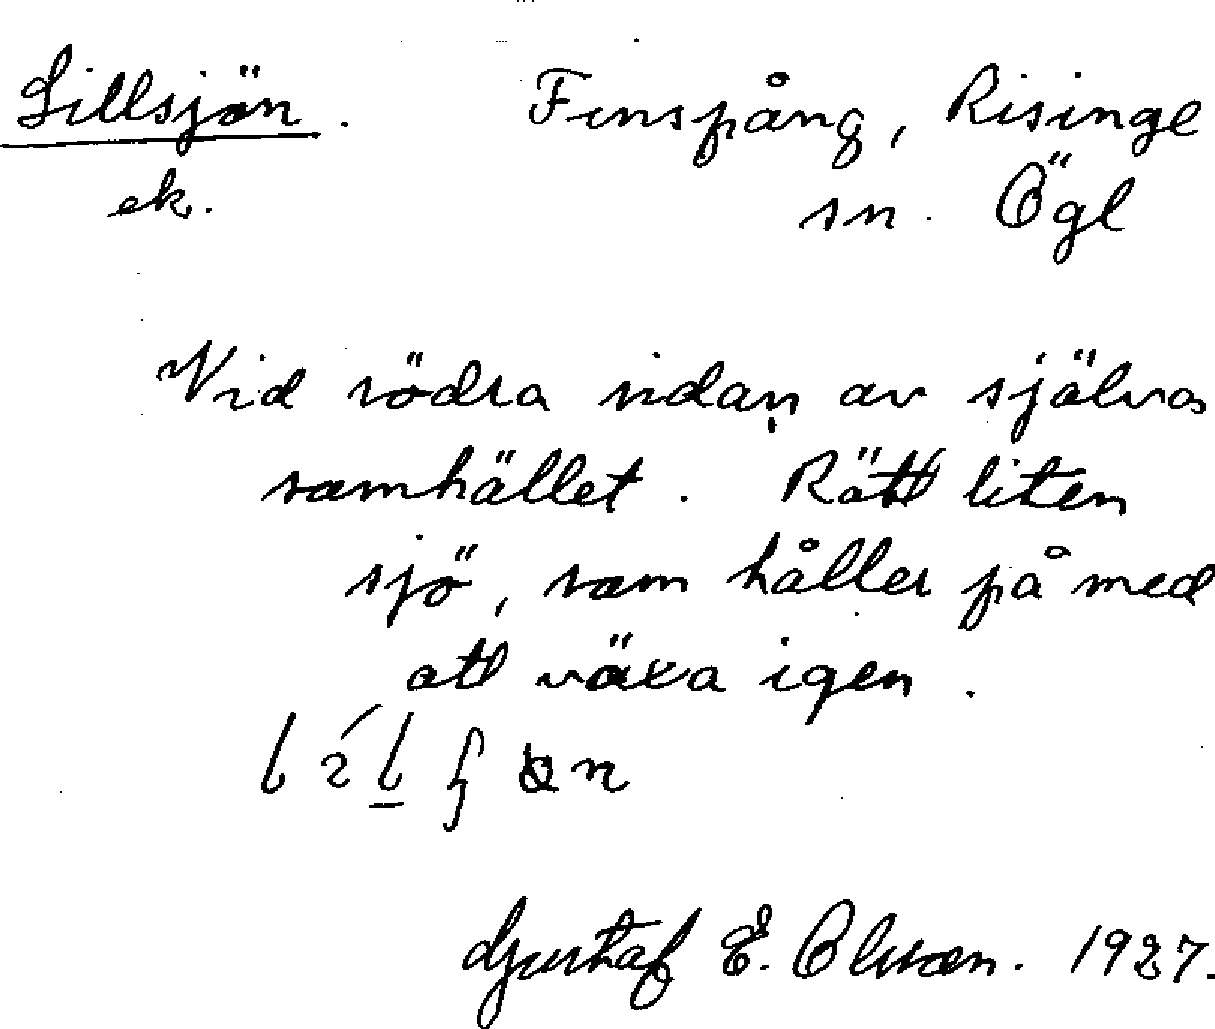 Lillsjön. Finspång, Risinge
ek. sn. Ögl
Vid södra sidan av själva
samhället. Rätt liten
sjö, som håller på med
att växa igen.
Gustaf E. Olsson. 1927.